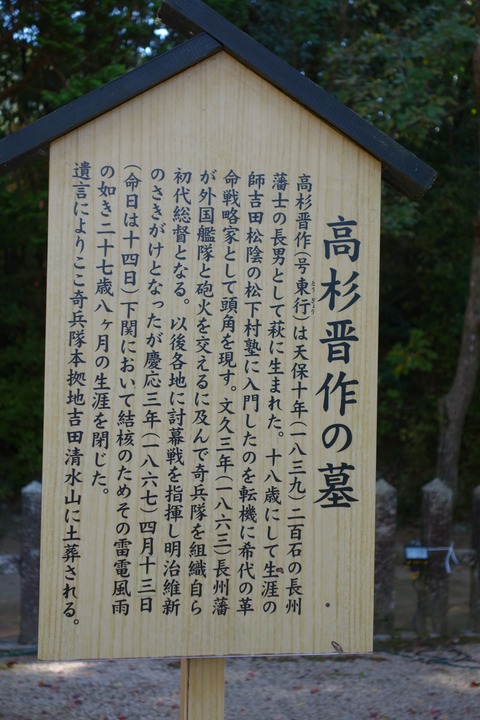 高杉晋作の墓
高杉晋作(号東行)は天保十年(一八三九)二百石の長州
とうぎょう
藩士の長男として萩に生まれた。十八歳にして生涯の
師吉田松陰の松下村塾に入門したのを転機に希代の革
命戦略家として頭角を現す。文久三年(一八六三)長州藩
が外国艦隊と砲火を交えるに及んで奇兵隊を組織自ら
初代総督となる。以後各地に討幕戦を指揮し明治維新
のさきがけとなったが慶応三年(一八六七)四月十三日
(命日は十四日)下関において結核のためその雷電風雨
の如き二十七歳八ヶ月の生涯を閉じた。
遺言によりここ奇兵隊本拠地吉田清水山に土葬される。